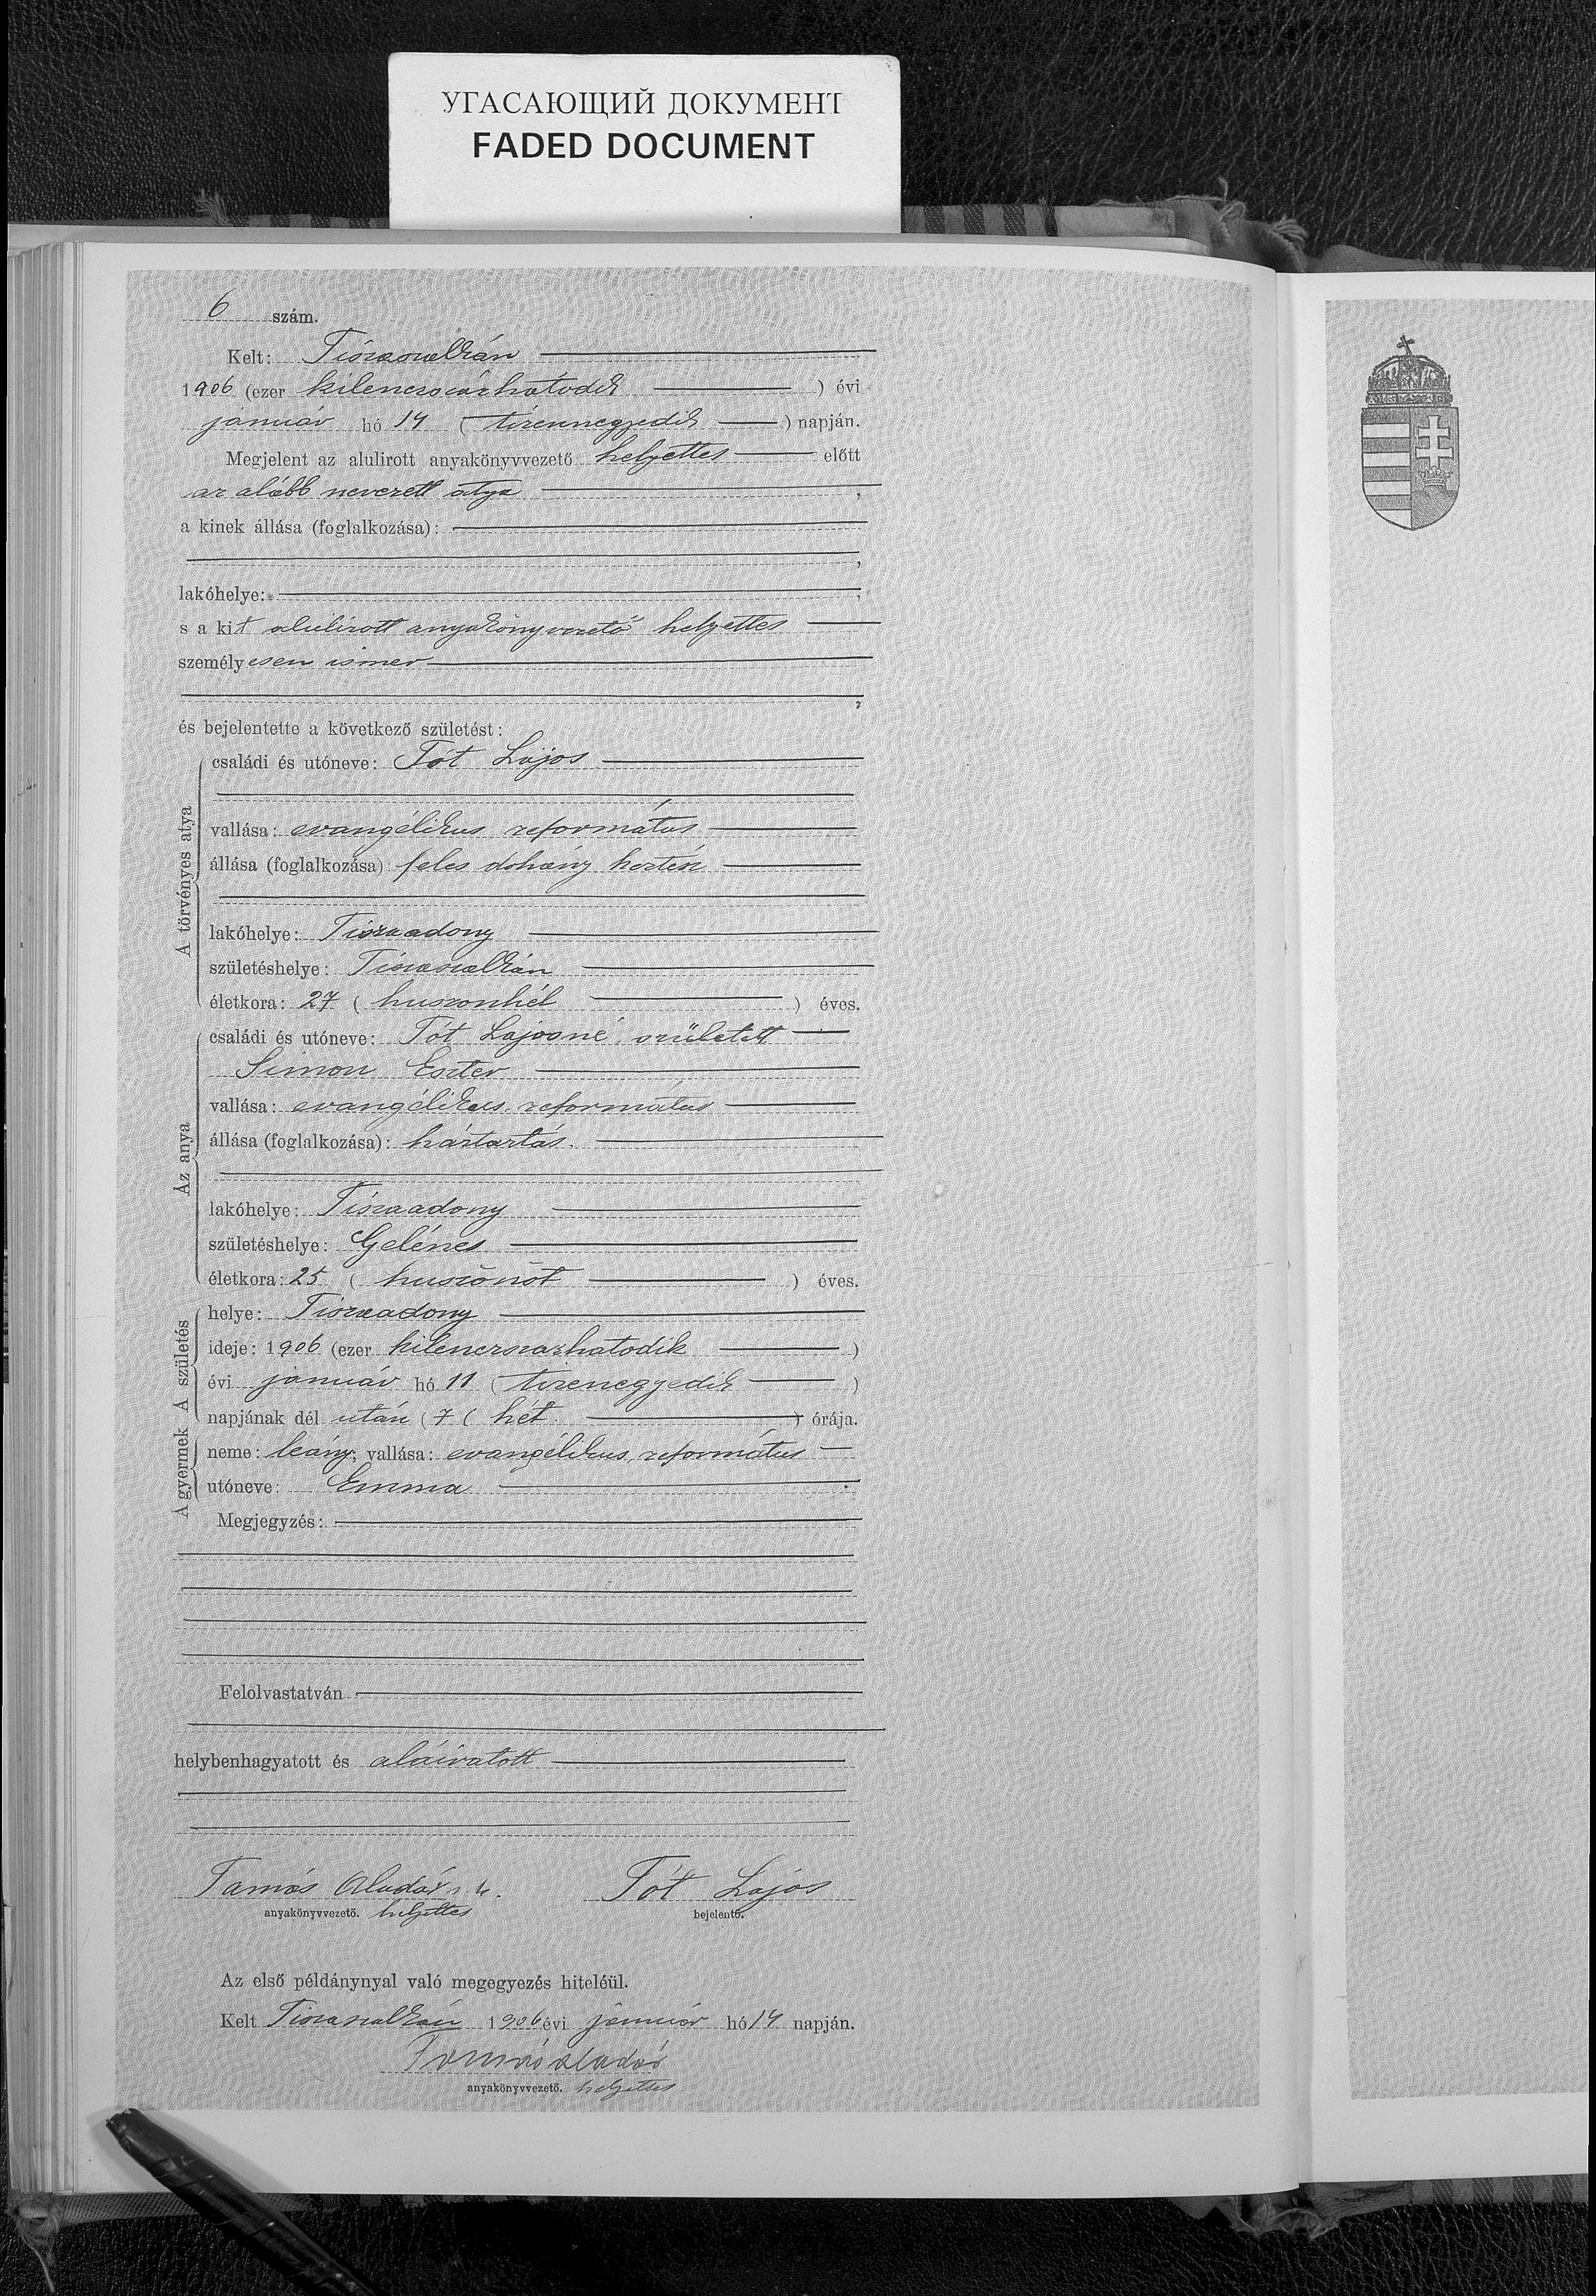 УГАСАЮЩИЙ ДОКУМЕНТ
FADED DOCUMENT
6 szám.
Kelt: Tiszaszalkán
1906 (ezer kilencszázhatodik ) évi
január hó 14 ( tizennegyedik ) napján.
Megjelent az alulirott anyakönyvvezető helyettes előtt
az alább nevezett atya ,
a kinek állása (foglalkozása):
,
lakóhelye: ,
s a kit alulirott anyakönyvvezető helyettes
személyesen ismer
,
és bejelentette a következő születést:
A törvényes atya
családi és utóneve: Tót Lajos
vallása: evangélikus református
állása (foglalkozása) feles dohány kertész
lakóhelye: Tiszaadony
születéshelye: Tiszaszalkán
életkora: 27 ( huszonhét ) éves.
Az anya
családi és utóneve: Tót Lajosné, született
Simon Eszter
vallása: evangélikus református
állása (foglalkozása): háztartás.
lakóhelye: Tiszaadony
születéshelye: Gelénes
életkora: 25 ( huszonöt ) éves.
A születés
helye: Tiszaadony
ideje: 1906 (ezer kilencszázhatodik )
évi január hó 11 ( tizenegyedik )
napjának dél után ( 7 ( hét. ) órája.
A gyermek
neme: leány; vallása: evangélikus református
utóneve: Emma .
Megjegyzés:
Felolvastatván
helybenhagyatott és aláiratott
Tamás Aladár s. k. Tót Lajos
anyakönyvvezető. helyettes bejelentő.
Az első példánynyal való megegyezés hiteléül.
Kelt Tiszaszalkán 1906 évi január hó 14 napján.
Tamás Aladár
anyakönyvvezető. helyettes